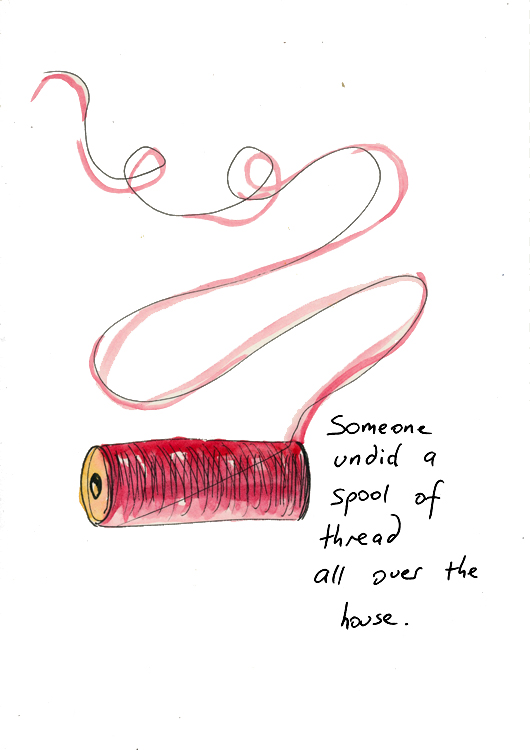 Someone
undid a
spool of
thread
all over the
house.